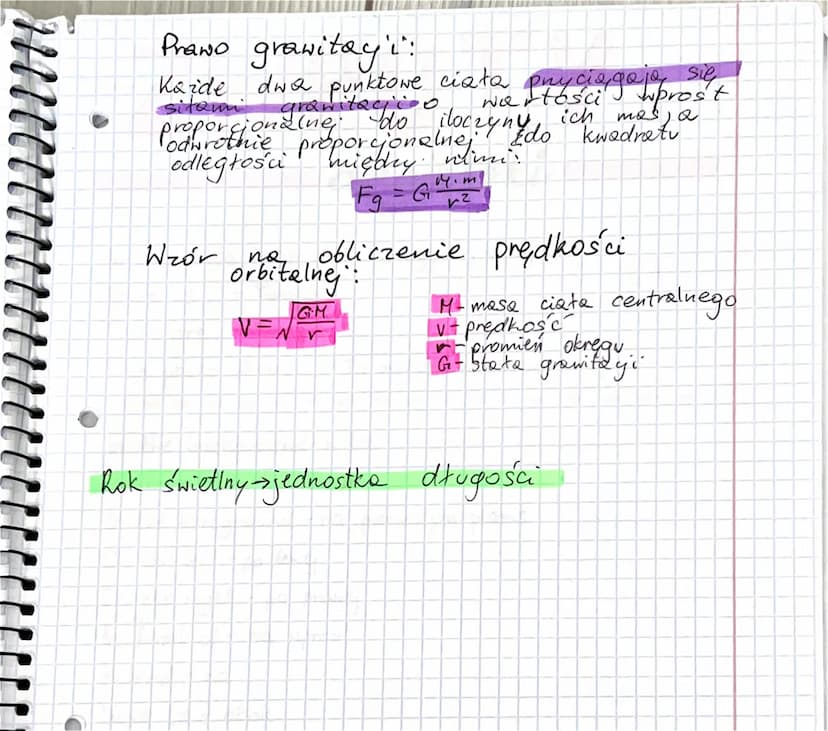 Prawo grawitacji:
Każde dwa punktowe ciała przyciągają się
siłami grawitacji o wartości wprost
proporcjonalnej do iloczynu ich mas, a
odwrotnie proporcjonalnej do kwadratu
odległości między nimi:
Fg = G M·m/r²
Wzór na obliczenie prędkości
orbitalnej:
V = √(G·M/r)
M - masa ciała centralnego
V - prędkość
r - promień okręgu
G - stała grawitacji
Rok świetlny → jednostka długości